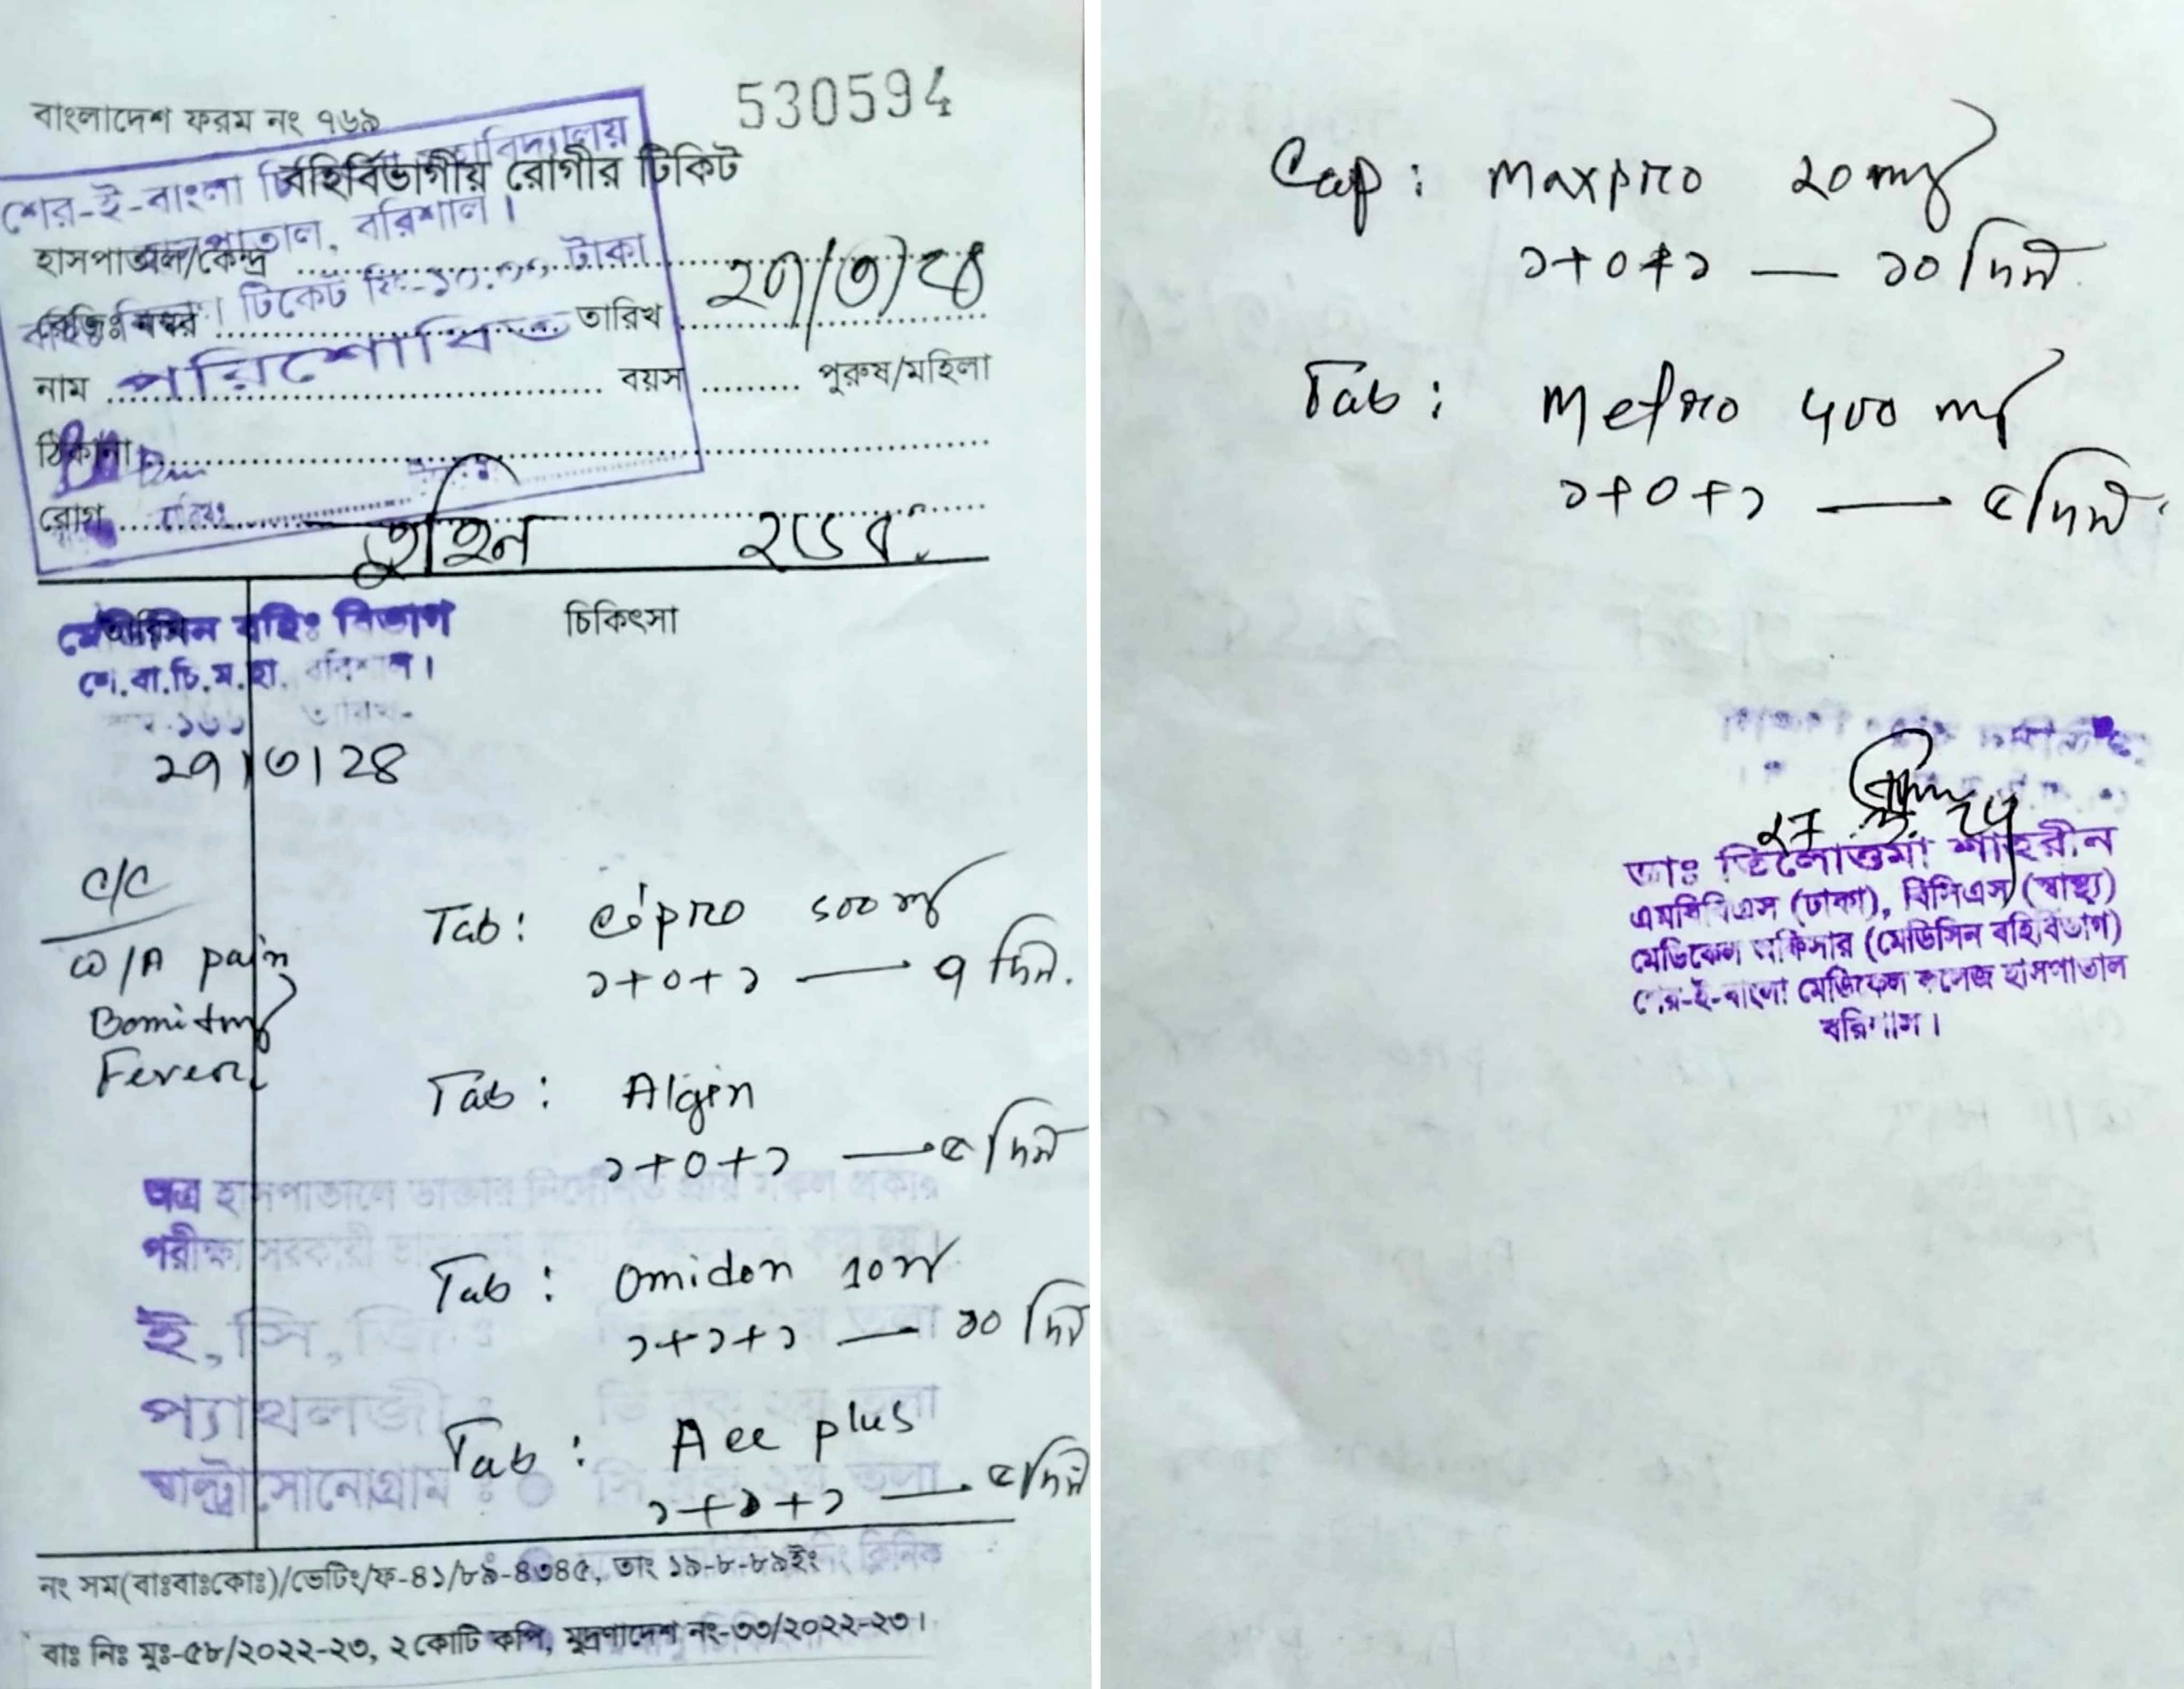 530594
বাংলাদেশ ফরম নং ৭৬৯
বহির্বিভাগীয় রোগীর টিকিট
শের-ই-বাংলা
হাসপাতাল, বরিশাল।
হাসপাতাল/কেন্দ্র
টিকেট ফি-১০.০০ টাকা
রেজিঃ নম্বর তারিখ ২৭/৩/২৪
পরিশোধিত
নাম বয়স পুরুষ/মহিলা
ঠিকানা
রোগ
তুহিন
মেডিসিন বহিঃ বিভাগ চিকিৎসা
শে.বা.চি.ম.হা. বরিশাল।
২৭|৩|২৪
C/C
Tab: Cipro 500 mg
১+০+১ — ৭ দিন.
W/A pain
Bomiting
Fever
Tab: Algin
১+০+১ — ৫ দিন
অত্র হাসপাতালে ডাক্তার নির্দেশিত প্রায় সকল প্রকার
পরীক্ষা সরকারী
Tab: Omidon 10 mg
১+১+১ — ১০ দিন
ই,সি,জি
প্যাথলজী :
Tab: Ace plus
১+১+১ — ৫ দিন
আল্ট্রাসোনোগ্রাম :
নং সম(বাঃবাঃকোঃ)/ভেটিং/ফ-৪১/৮৯-৪৩৪৫, তাং ১৯-৮-৮৯ইং
বাঃ নিঃ মুঃ-৫৮/২০২২-২৩, ২ কোটি কপি, মুদ্রণাদেশ নং-৩৩/২০২২-২৩।
Cap: Maxpro 20 mg
১+০+১ — ১০ দিন
Tab: Metro 400 mg
১+০+১ — ৫ দিন
২৭.৩.২৪
ডাঃ তিলোত্তমা শাহরীন
এমবিবিএস (ঢাকা), বিসিএস (স্বাস্থ্য)
মেডিকেল অফিসার (মেডিসিন বহির্বিভাগ)
শের-ই-বাংলা মেডিকেল কলেজ হাসপাতাল
বরিশাল।